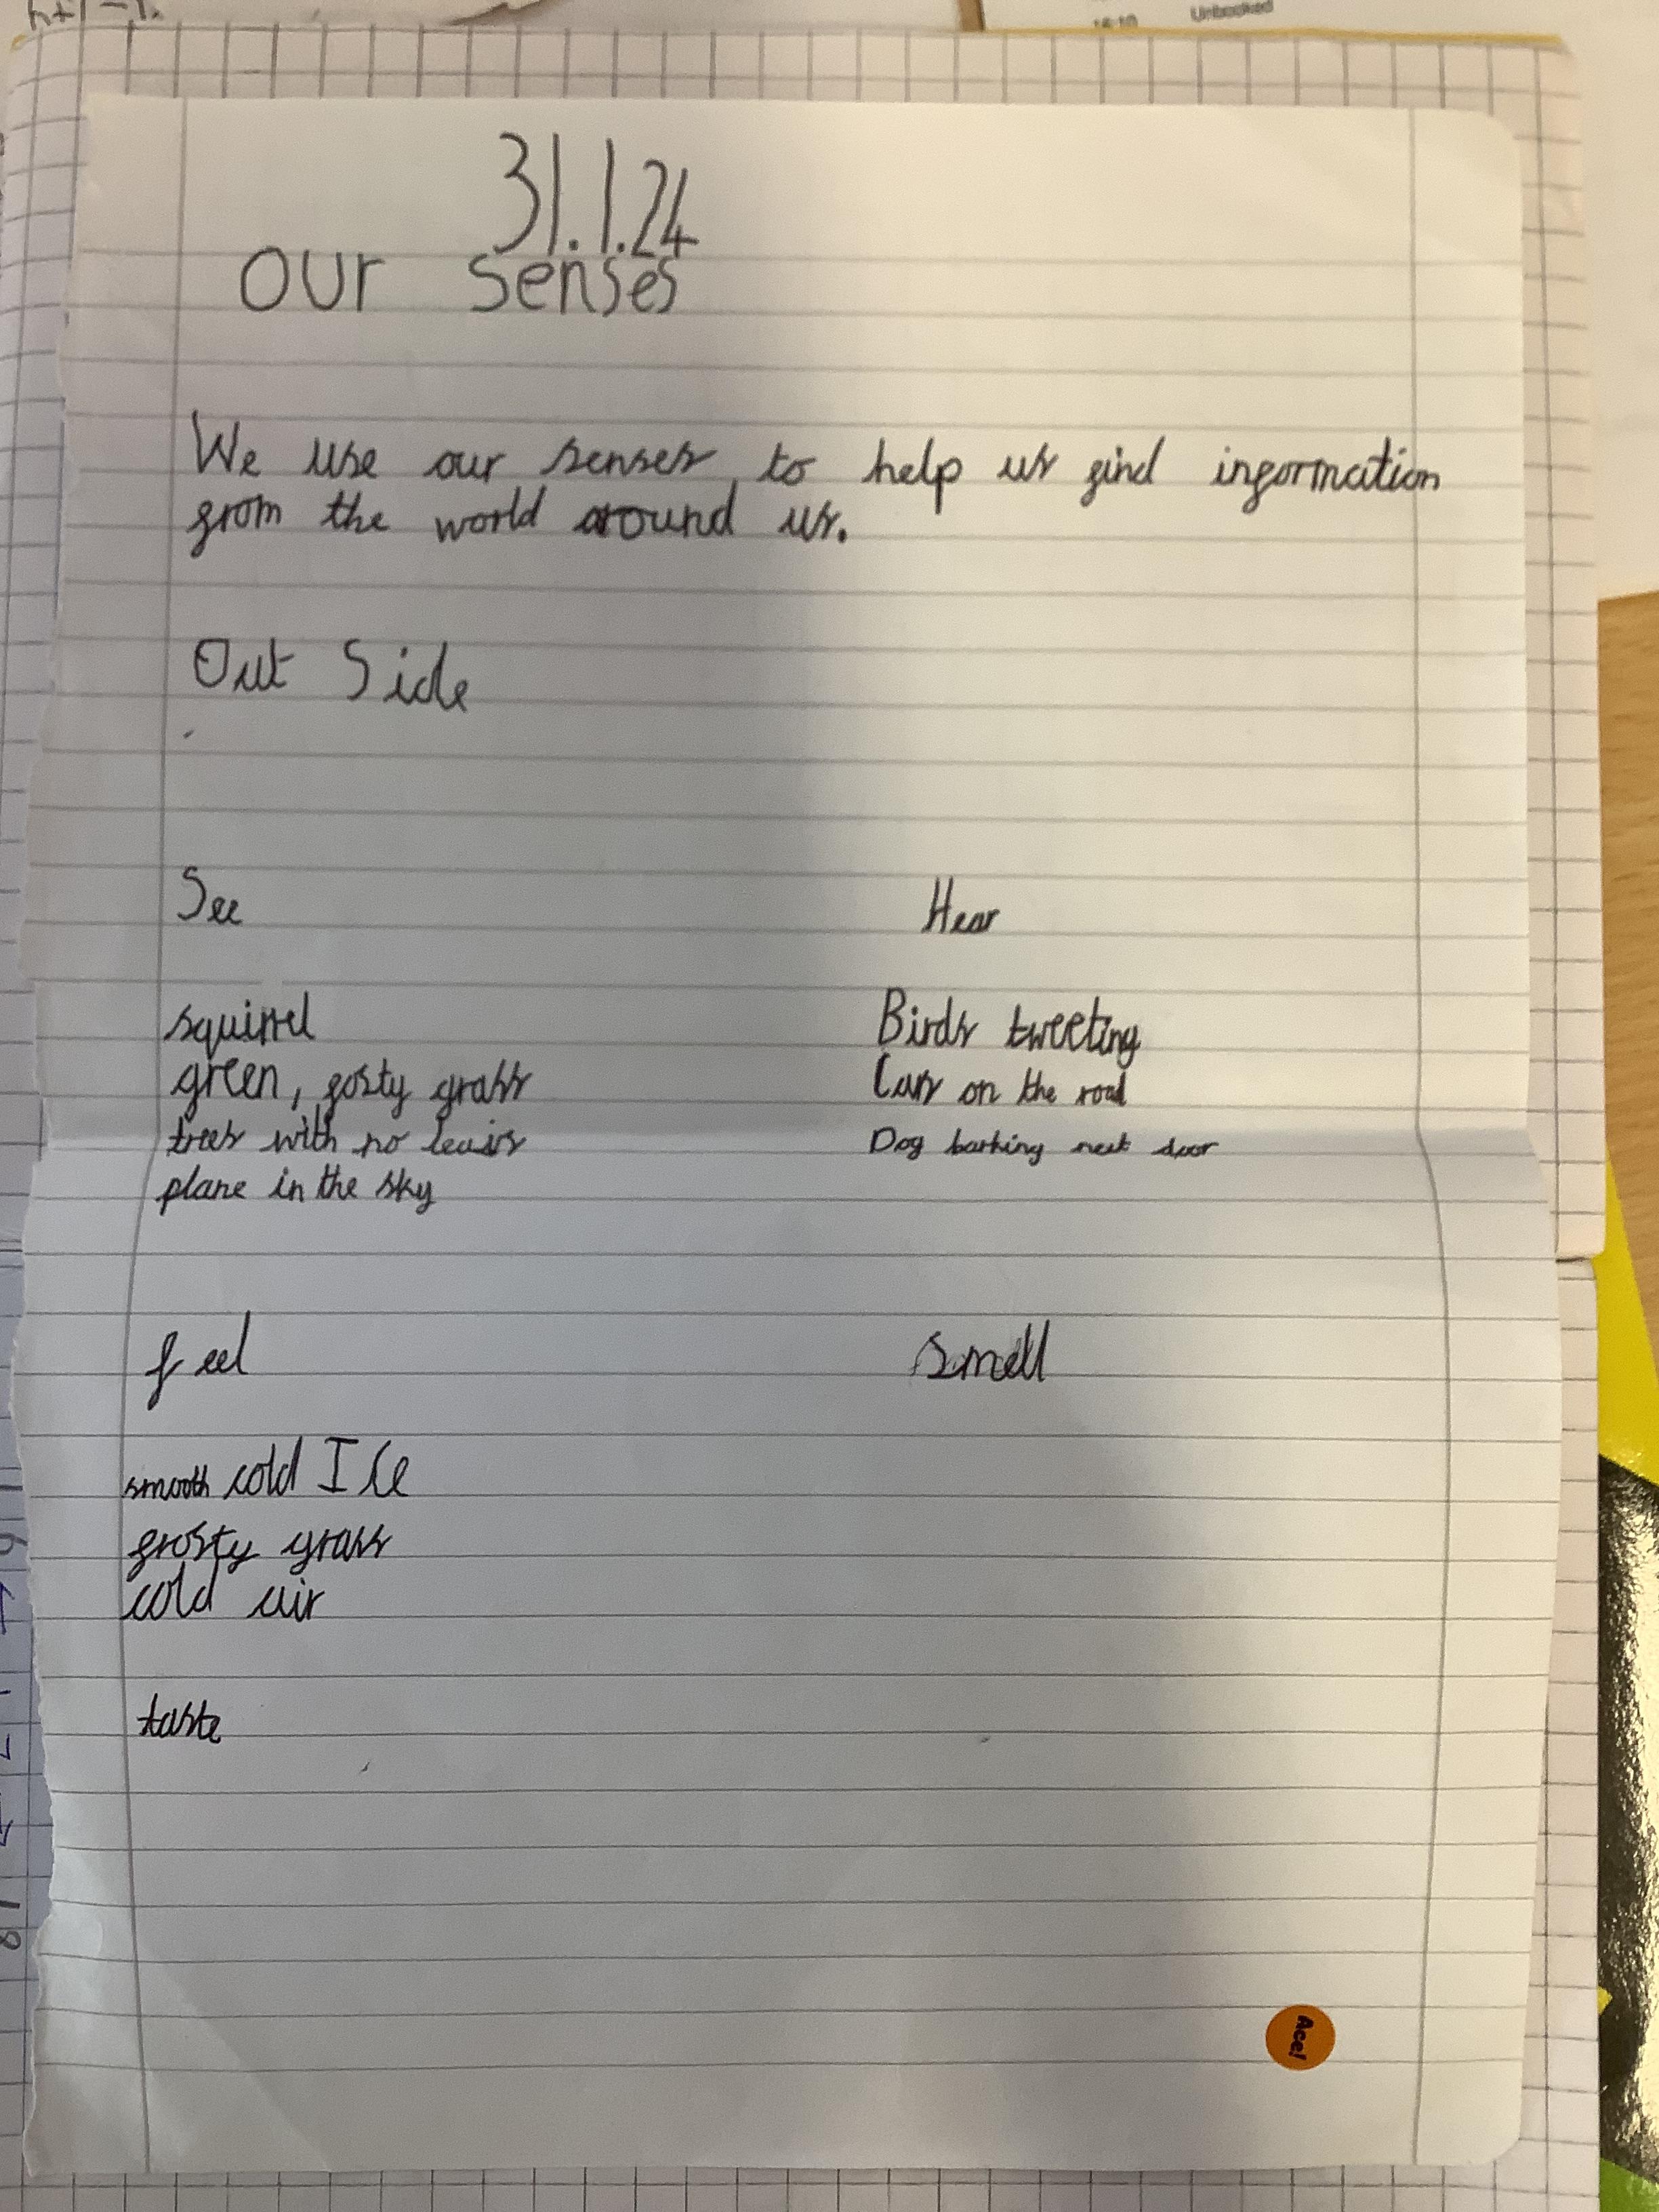 16:10 Unbooked
31.1.24
our senses
We use our senses to help us find information
from the world around us.
Out Side
See
Hear
squirrel
Birds tweeting
green, fosty grass
Cars on the road
trees with no leavs
Dog barking next door
plane in the sky
feel
smell
smooth cold Ice
frosty grass
cold air
taste
Ace!